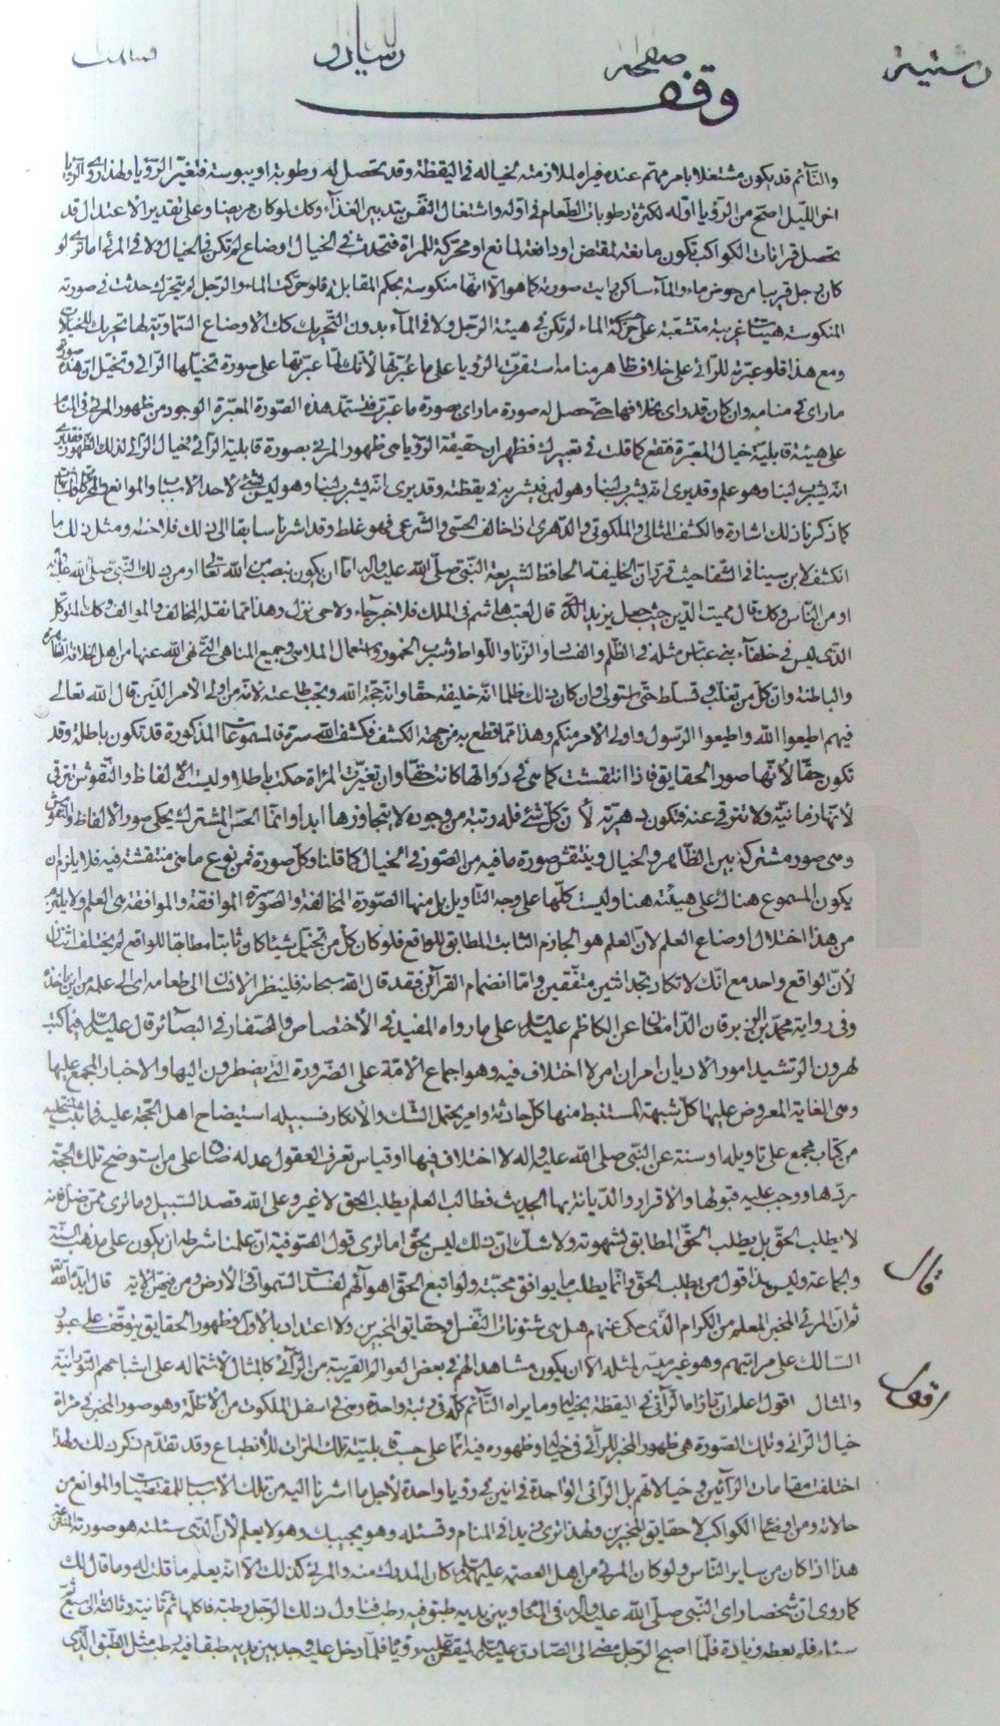 وقف
والنائم قد يكون مشتغلا بامر مهتم عنده فيراه لملازمته لخياله في اليقظة وقد تحصل له رطوبة او يبوسة فتغير الرؤيا ولهذا روي الرؤيا
اخر الليل اصح من الرؤيا اوله لكثرة رطوبات الطعام في اوله واشتغال النفس بتدبير الغذاء وكك لو كان مريضا وعلى تقدير الاعتدال قد
تحصل قرانات الكواكب تكون مانعة لمقتض او دافعة لمانع او محركة للمراة فتحدث في الخيال اوضاع لم تكن في الخيال ولا في المرئي اما ترى لو
كان رجل قريبا من حوض ماء والماء ساكن رايت صورته كما هو الا انها منكوسة بحكم المقابلة فلو حركت الماء والرجل لم يتحرك حدثت في صورته
المنكوسة هيئات غريبة متشعبة على حركة الماء لم تكن في هيئة الرجل ولا في الماء بدون التحريك كك الاوضاع السماوية لها تحريك للخيالات
ومع هذا فلو عبرته للرائي على خلاف ظاهر منامه استقرت الرؤيا على ما عبرتها لانك لما عبرتها على صورة تخيلها الرائي وتخيل ان هذه صورة
ما راى في منامه وان كان قد راى بخلافها حتى حصل له صورة ما راى بصورة ما عبرت فتستمد هذه الصورة المعبرة الوجود من ظهور المرئي في المنام
على هيئة قابلية خيال المعبرة فتقع كما قلت في تعبيرك فظهر ان حقيقة الرؤيا هي ظهور المرئي بصورة قابلية الرائي وخيال الرائي لذلك الظهور فقد يرى
انه يشرب لبنا وهو علم وقد يرى انه يشرب لبنا وهو لبن فيشربه في يقظته وقد يرى انه يشرب لبنا وهو ليس بشئ لاحد الاسباب والموانع
كما ذكرنا ذلك اشارة والكشف المثالي والملكوتي والدهري اذا خالف الحسي والشرعي فهو غلط وقد اشرنا سابقا الى ذلك فلاحظه ومثل ذلك ما
انكشف لابن سينا في الشفا حيث قرر ان الخليفة الحافظ لشريعة النبي صلى الله عليه واله اما ان يكون بنصب من الله تعالى او من ذلك النبي صلى الله عليه واله
او من الناس وكك قال مميت الدين حيث جعل يزيد الذي قال لعبت هاشم في الملك فلا خبر جاء ولا وحي نزل وهذا مما نقله المخالف والموالف وكك المتوكل
الذي ليس في خلفاء بني عباس مثله في الظلم والفساد والزنا واللواط وشرب الخمور واستعمال الملاهي وجميع المناهي التي نهى الله عنها من اهل الخلافة الظاهرة
والباطنة وان كل من تغلب وتسلط حتى استولى وان كان ذلك ظلما انه خليفة حقا وانه حجة الله وتجب طاعته لانه من اولي الامر الذين قال الله تعالى
فيهم اطيعوا الله واطيعوا الرسول واولي الامر منكم وهذا مما قطع به من جهة الكشف فكشف الله ستره فالمسموعات المذكورة قد تكون باطلة وقد
تكون حقا لانها صور الحقايق فاذا انتقشت كما هي في ذواتها كانت حقا وان تغيرت المراة حكت باطلا وليست الالفاظ والنقوش تترقى
لانها زمانية ولا تترقى عنه فتكون دهرية لان كل شئ فله رتبة من وجوده لا يتجاوزها ابدا وانما الحس المشترك يحكي صور الالفاظ والنقوش
وهي صور مشتركة بين الظاهر والخيال وينتقش صورة ما فيه من الصور في الخيال كما قلنا وكل صورة فمن نوع ما هي منتقشة فيه فلا يلزم ان
يكون المسموع هناك على هيئته هنا وليست كلها على وجه التاويل بل منها الصورة المخالفة والصورة الموافقة والموافقة هي العلم ولا يلزم
من هذا اختلال اوضاع العلم لان العلم هو الجازم الثابت المطابق للواقع فلو كان كل من تخيل شيئا كان ثابتا مطابقا للواقع لم يختلف اثنان
لان الواقع واحد مع انك لا تكاد تجد اثنين متفقين واما انضمام القرآن فقد قال الله سبحانه فلينظر الانسان الى طعامه اي الى علمه من اين ياخذه
وفي رواية محمد بن الزبرقان الدامغاني عن الكاظم عليه السلام على ما رواه المفيد في الاختصاص والصفار في البصائر قال عليه السلم فيما كتب
لهرون الرشيد امور الاديان امران امر لا اختلاف فيه وهو اجماع الامة على الضرورة التي يضطرون اليها والاخبار المجمع عليها
وهي الغاية المعروض عليها كل شبهة المستنبط منها كل حادثة وامر يحتمل الشك والانكار فسبيله استيضاح اهل الحجة عليه فما ثبت لمنتحليه
من كتاب مجمع على تاويله او سنة عن النبي صلى الله عليه واله لا اختلاف فيها او قياس تعرف العقول عدله ضاق على من استوضح تلك الحجة
ردها ووجب عليه قبولها والاقرار والديانة بها الحديث فطالب العلم يطلب الحق لا غير وعلى الله قصد السبيل وما ترى ممن ضل فانه
لا يطلب الحق بل يطلب الحق المطابق لشهوته ولا شك ان ذلك ليس بحق اما ترى قول الصوفية ان علمنا شرطه ان يكون على مذهب السنة
والجماعة وليس هذا قول من يطلب الحق وانما يطلب ما يوافق محبته ولو اتبع الحق اهوائهم لفسدت السموات والارض ومن فيهن الاية قال ايده الله
قال
ثم ان المرئي المخبر المعلم من الكرام الذي حكى عنهم هل هي شئونات النفس وحقايق المخبرين ولا اعتداد بالاول وظهور الحقايق يتوقف على عبور
السالك على مراتبهم وهو غير ميسر لمثله الا ان يكون مشاهدا لهم في بعض العوالم القريبة من الرائي كالمثال لاشتماله على اشباحهم النورانية
والمثال اقول اعلم ان ما يراه الرائي في اليقظة بخياله وما يراه النائم كله في رتبة واحدة وهي في اسفل الملكوت من الاظلة وهو صور المخبر في مراة
اقول
خيال الرائي وتلك الصورة هي ظهور المخبر للرائي في خياله وظهوره فيه انما على حسب قابلية تلك المراة للانطباع وقد تقدم ذكر ذلك ولهذا
اختلفت مقامات الرائين وخيالاتهم بل الرائي الواحدة في انين في رؤيا واحدة لاجل ما اشرنا اليه من تلك الاسباب للمقتضيات والموانع من
حالاته ومن اوضاع الكواكب لا حقايق المخبرين ولهذا ترى زيدا في المنام وتسئله وهو يجيبك وهو لا يعلم لان الذي سئلته هو صورته
هذا اذا كان من ساير الناس ولو كان المرئي من اهل العصمة عليهم السلم كان المدرك منه والمرئي كذلك الا انه يعلم ما قلت له وما قال لك
كما روي ان شخصا راى النبي صلى الله عليه واله في المنام وبين يديه طبق فيه رطب فناول ذلك الرجل رطبة فاكلها ثم ثانية وثالثة الى سبع
سئله فلم يعطه زيادة فلما اصبح الرجل مضى الى الصادق عليه السلم ليقص عليه رؤياه فلما دخل عليه وجد بين يديه طبقا فيه رطب مثل الطبق الذي